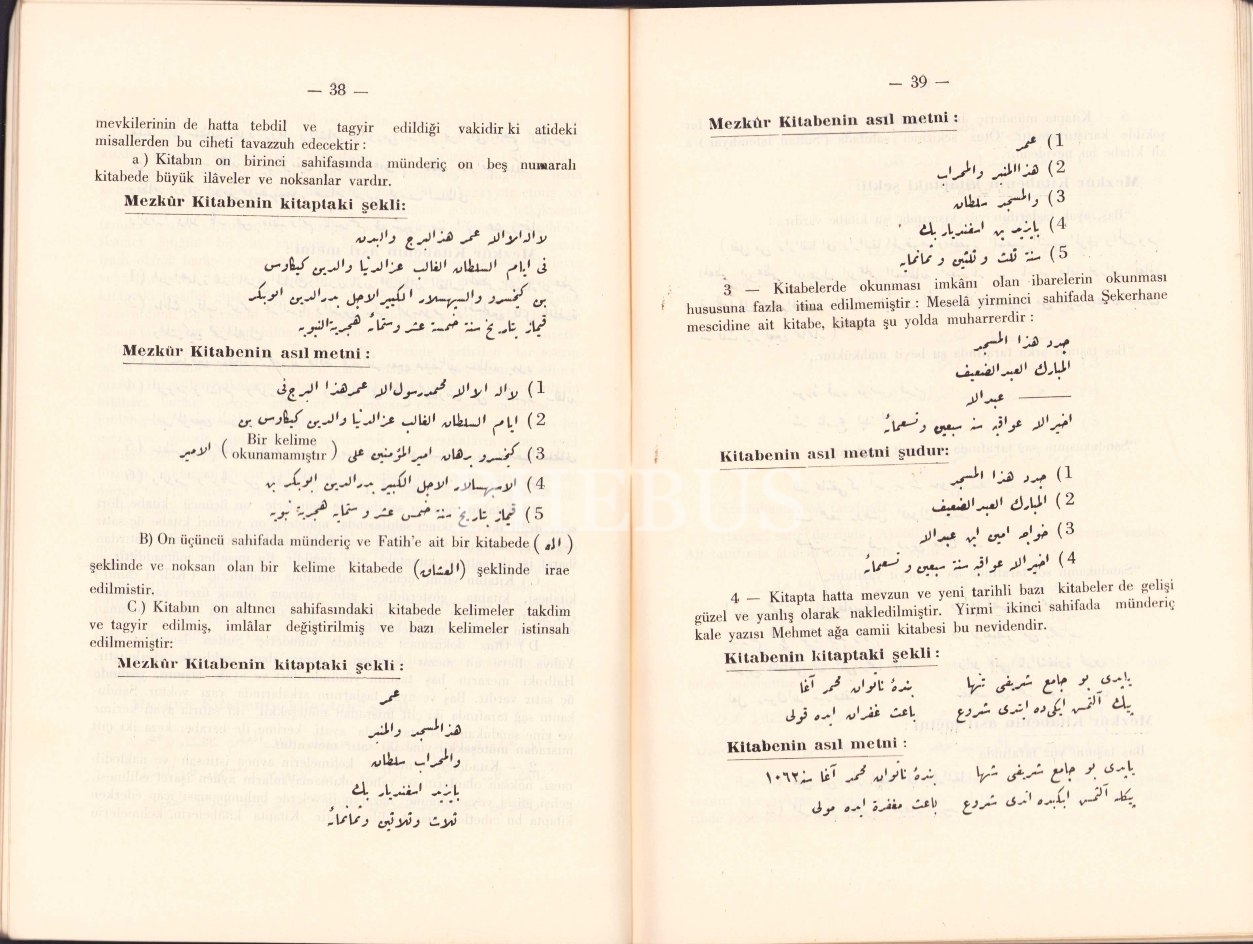 — 38 —
mevkilerinin de hatta tebdil ve tagyir edildiği vakidir ki atideki
misallerden bu ciheti tavazzuh edecektir :
a ) Kitabın on birinci sahifasında münderiç on beş numaralı
kitabede büyük ilâveler ve noksanlar vardır.
Mezkûr Kitabenin kitaptaki şekli:
لا اله الا الله عمر هذ البرج والبدن
فى ايام السلطان الغالب عز الدنيا والدين كيكاوس
بن كيخسرو والسپهسلار الكبير الاجل بدر الدين ابوبكر
قيماز بتاريخ سنة خمسة عشر وستمأة هجرية النبويه
Mezkûr Kitabenin asıl metni :
1) لا اله الا الله محمد رسول الله عمر هذا البرج فى
2) ايام السلطان الغالب عز الدنيا والدين كيكاوس بن
3) كيخسرو برهان امير المؤمنين على ( Bir kelime okunamamıştır ) الامير
4) الاسپهسلار الاجل الكبير بدر الدين ابوبكر بن
5) قيماز بتاريخ سنة خمس عشر وستمايه هجرية نبويه
B) On üçüncü sahifada münderiç ve Fatih'e ait bir kitabede ( )
şeklinde ve noksan olan bir kelime kitabede (العشاق) şeklinde irae
edilmistir.
C ) Kitabın on altıncı sahifasındaki kitabede kelimeler takdim
ve tagyir edilmiş, imlâlar değiştirilmiş ve bazı kelimeler istinsah
edilmemiştir:
Mezkûr Kitabenin kitaptaki şekli :
عمر
هذ المسجد والمنبر
والمحراب سلطان
بايزيد اسفنديار بك
ثلاث وثلاثين وثمانمأة
— 39 —
Mezkûr Kitabenin asıl metni :
1) عمر
2) هذا المنبر والمحراب
3) والمسجد سلطان
4) بايزيد بن اسفنديار بك
5) سنة ثلث وثلثين وثمانمايه
3 — Kitabelerde okunması imkânı olan ibarelerin okunması
hususuna fazla itina edilmemiştir : Meselâ yirminci sahifada Şekerhane
mescidine ait kitabe, kitapta şu yolda muharrerdir :
جدد هذا المسجد
المبارك العبد الضعيف
——— عبد الله
اخير الله عواقبه سنه سبعين وتسعمأة
Kitabenin asıl metni şudur:
1) جدد هذا المسجد
2) المبارك العبد الضعيف
3) خواجه امين ابن عبد الله
4) اخير الله عواقبه سنة سبعين وتسعمأة
4 — Kitapta hatta mevzun ve yeni tarihli bazı kitabeler de gelişi
güzel ve yanlış olarak nakledilmiştir. Yirmi ikinci sahifada münderiç
kale yazısı Mehmet ağa camii kitabesi bu nevidendir.
Kitabenin kitaptaki şekli :
يايدى بو جامع شريفى تنها بندۀ ناتوان محمد آغا
بيك آلتمش ايكى ده ابتدى شروع باعث غفران ايده قولى
Kitabenin asıl metni :
يايدى بو جامع شريفى شها بندۀ ناتوان محمد آغا سنه ١٠٦٢
بيكله آلتمش ايكيده ابتدى شروع باعث مغفرة ايده مولى
HEBUS